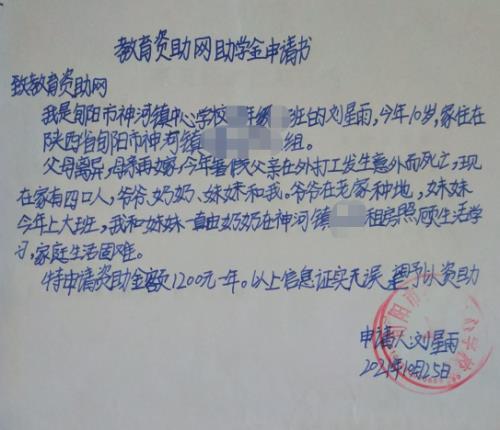 教育资助网助学金申请书
致教育资助网
我是旬阳市神河镇中心学校 年级 班的刘星雨，今年10岁，家住在
陕西省旬阳市神河镇 组。
父母离异，母亲再嫁，今年暑假父亲在外打工发生意外而死亡，现
在家有四口人，爷爷、奶奶、妹妹和我。爷爷在老家种地，妹妹
今年上大班，我和妹妹一直由奶奶在神河镇 租房照顾生活学
习，家庭生活困难。
特申请资助金额1200元一年。以上信息证实无误，望予以资助
申请人：刘星雨
2021年10月25日
旬阳市